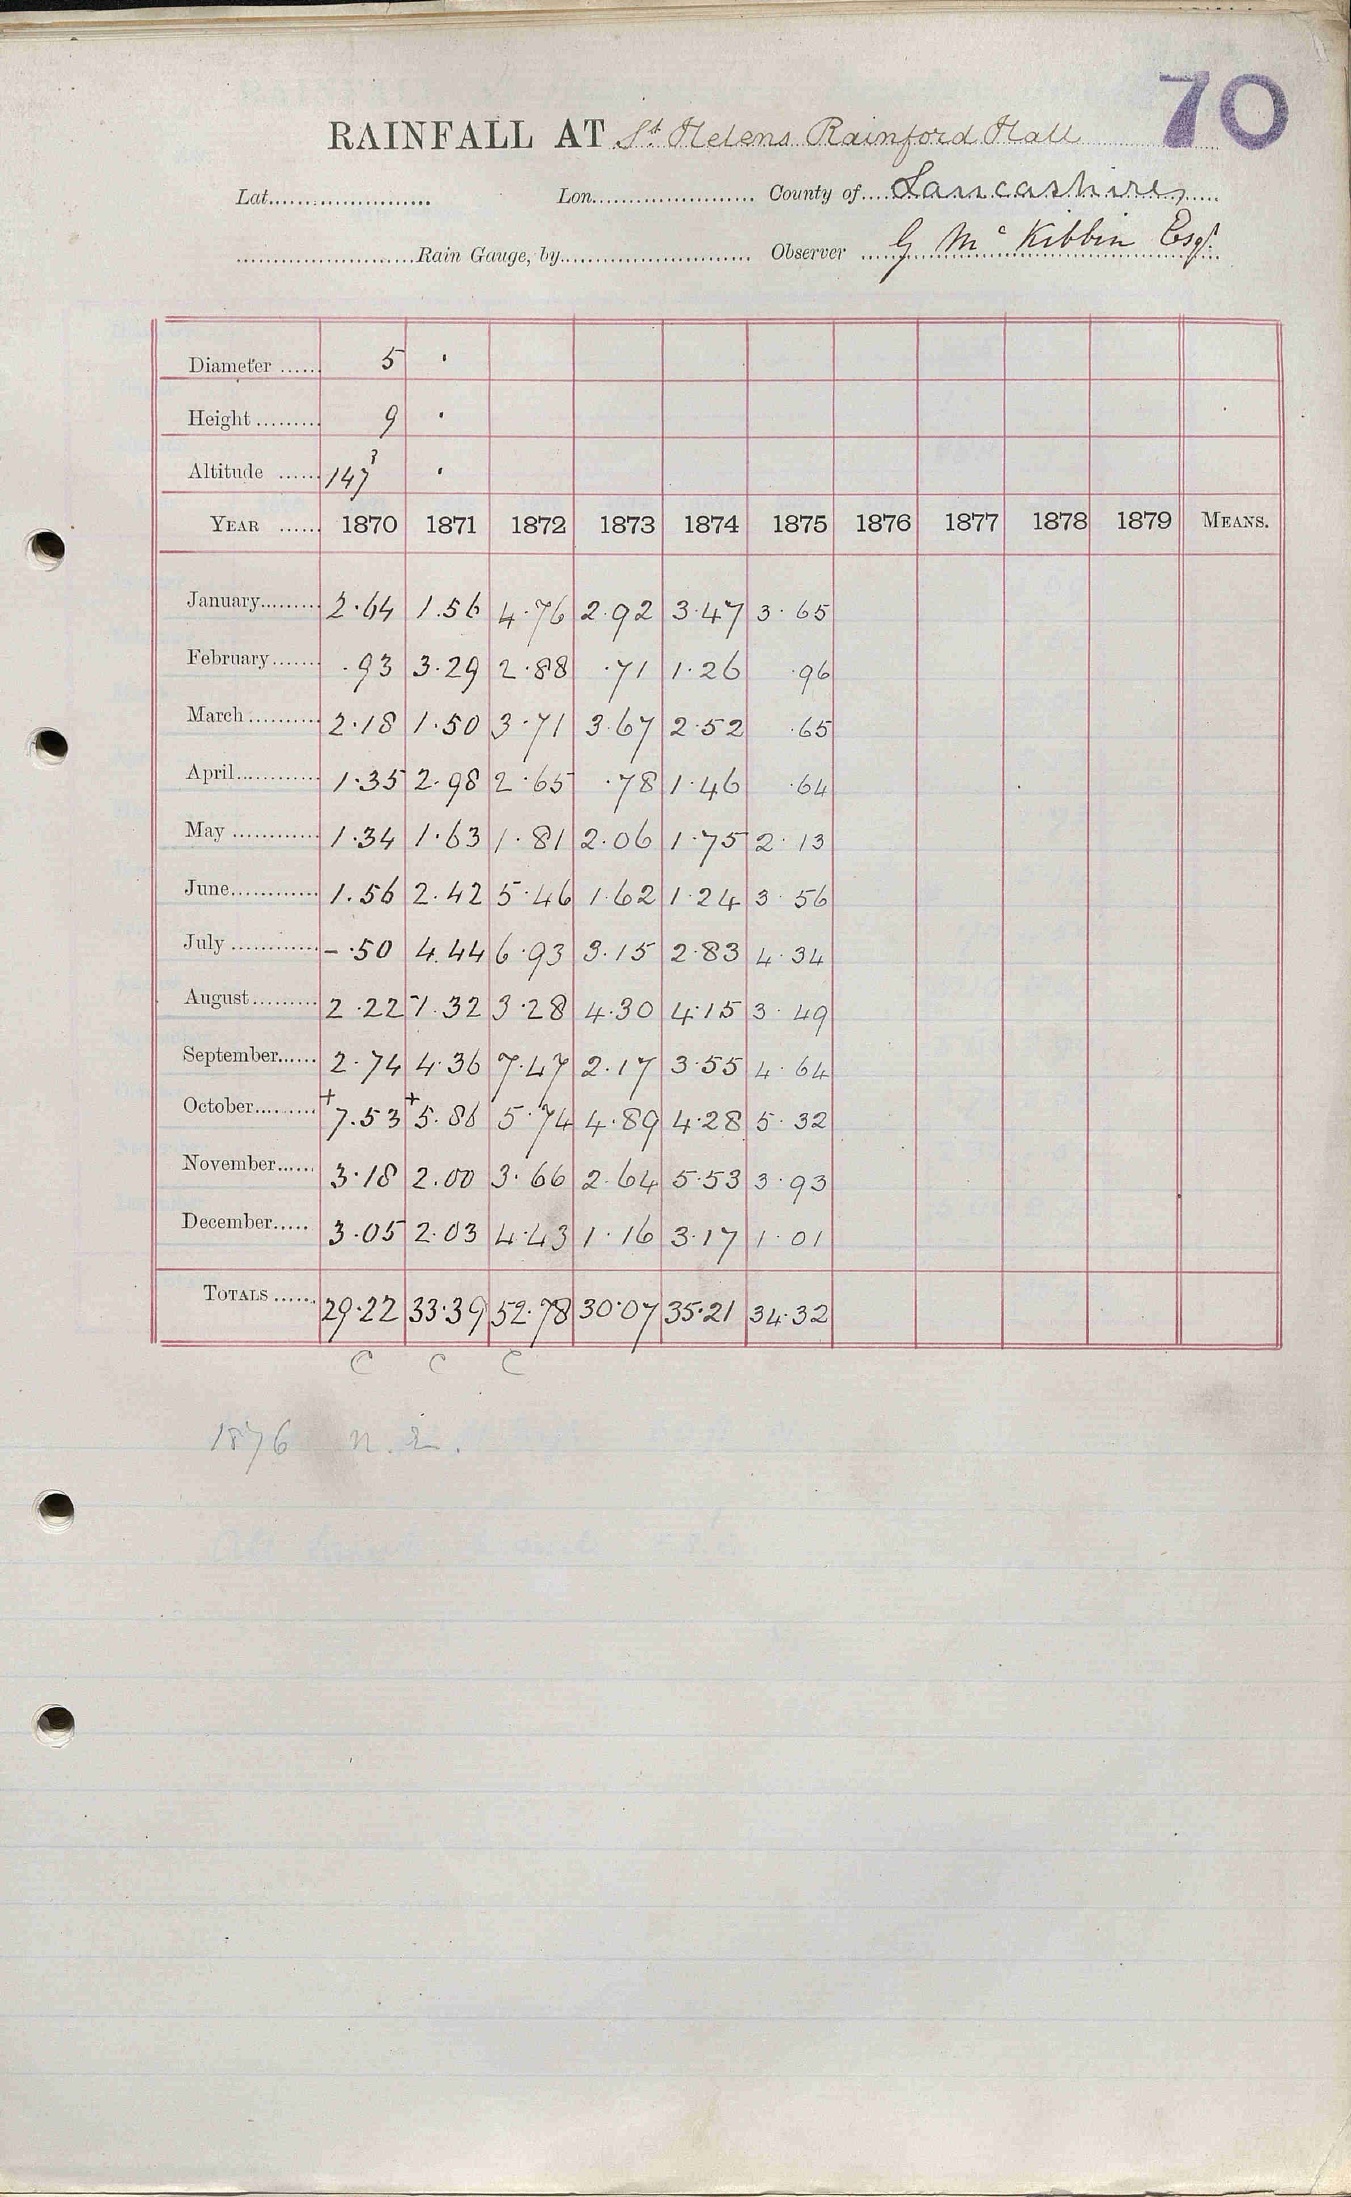 70
RAINFALL AT St. Helens Rainford Hall
Lat. Lon. County of Lancashire
Rain Gauge, by Observer G McKibbin Esqr.
Diameter 5 "
Height 9 "
Altitude 147 3 "
YEAR 1870 1871 1872 1873 1874 1875 1876 1877 1878 1879 MEANS.
January 2.64 1.56 4.76 2.92 3.47 3.65
February .93 3.29 2.88 .71 1.26 .96
March 2.18 1.50 3.71 3.67 2.52 .65
April 1.35 2.98 2.65 .78 1.46 .64
May 1.34 1.63 1.81 2.06 1.75 2.13
June 1.56 2.42 5.46 1.62 1.24 3.56
July - .50 4.44 6.93 3.15 2.83 4.34
August 2.22 - 1.32 3.28 4.30 4.15 3.49
September 2.74 4.36 7.47 2.17 3.55 4.64
October + 7.53 + 5.86 5.74 4.89 4.28 5.32
November 3.18 2.00 3.66 2.64 5.53 3.93
December 3.05 2.03 4.43 1.16 3.17 1.01
TOTALS 29.22 33.39 52.78 30.07 35.21 34.32
C C C
1876 n. r.